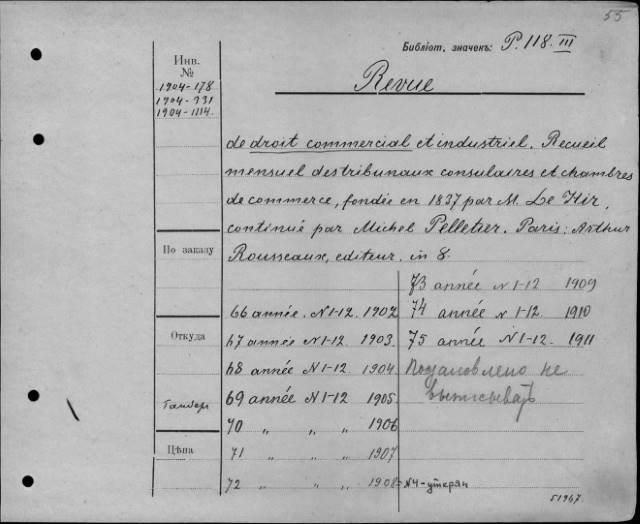 55
Библіот. значекъ: P. 118. III
Инв.
№
1904-178
1904-931
1904-1114.
Revue
de droit commercial et industriel. Recueil
mensuel des tribunaux consulaires et chambres
de commerce, fondée en 1837 par M. Le Hir,
continué par Michel Pelletier. Paris: Arthur
Rousseaux, editeur. in 8.
По заказу
Откуда
Цѣна
66 année. N 1-12. 1902
67 année N 1-12. 1903.
68 année N 1-12. 1904.
69 année N 1-12 1905.
70 " " " 1906
71 " " " 1907
72 " " " 1908 N4-утерян
73 année N 1-12 1909
74 année N 1-12. 1910
75 année N 1-12. 1911
Постановлено не
выписывать
51967.